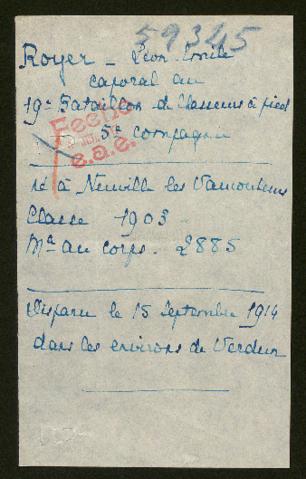 59345
Royer - Léon Emile
caporal au
19e Bataillon de Chasseurs à pied
5e compagnie
né à Neuville les Vaucouleurs
Classe 1903
Mle au corps. 2885
Disparu le 15 Septembre 1914
dans les environs de Verdun